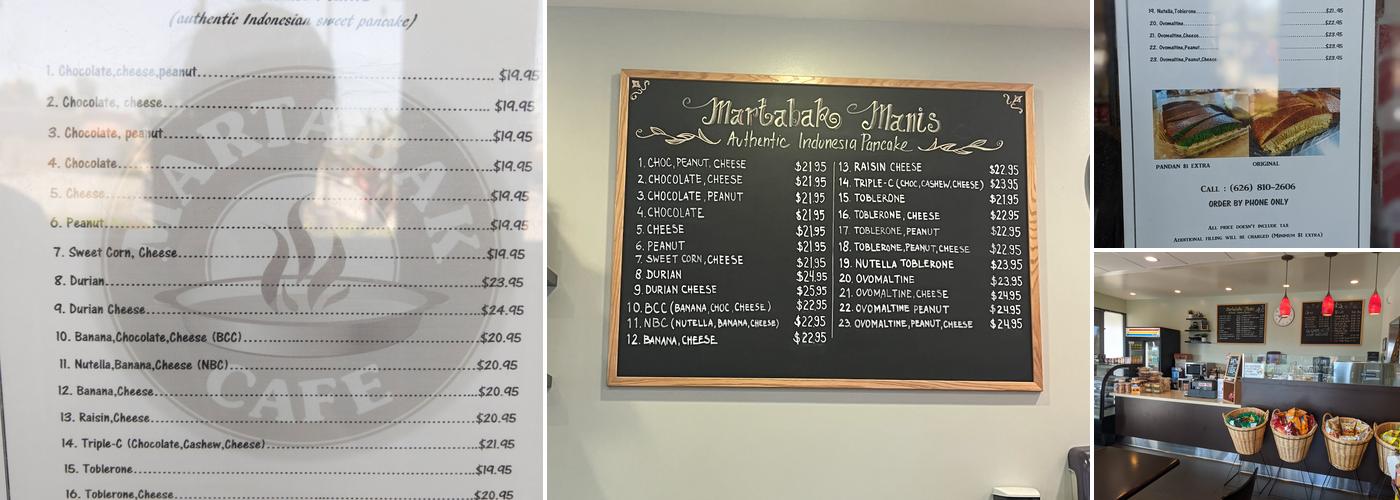 (authentic Indonesian sweet pancake)
1. Chocolate,cheese,peanut $19.95
2. Chocolate, cheese $19.95
3. Chocolate, peanut $19.95
4. Chocolate $19.95
5. Cheese $19.95
6. Peanut $19.95
7. Sweet Corn, Cheese $19.95
8. Durian $23.95
9. Durian Cheese $24.95
10. Banana,Chocolate,Cheese (BCC) $20.95
11. Nutella,Banana,Cheese (NBC) $20.95
12. Banana,Cheese $20.95
13. Raisin,Cheese $20.95
14. Triple-C (Chocolate,Cashew,Cheese) $21.95
15. Toblerone $19.95
16. Toblerone,Cheese $20.95
MARTABAK
CAFE
Martabak Manis
Authentic Indonesia Pancake
1. CHOC, PEANUT, CHEESE $21.95
2. CHOCOLATE, CHEESE $21.95
3. CHOCOLATE, PEANUT $21.95
4. CHOCOLATE $21.95
5. CHEESE $21.95
6. PEANUT $21.95
7. SWEET CORN, CHEESE $21.95
8. DURIAN $24.95
9. DURIAN CHEESE $25.95
10. BCC (BANANA, CHOC, CHEESE) $22.95
11. NBC (NUTELLA, BANANA, CHEESE) $22.95
12. BANANA, CHEESE $22.95
13. RAISIN CHEESE $22.95
14. TRIPLE-C (CHOC, CASHEW, CHEESE) $23.95
15. TOBLERONE $21.95
16. TOBLERONE, CHEESE $22.95
17. TOBLERONE, PEANUT $22.95
18. TOBLERONE, PEANUT, CHEESE $22.95
19. NUTELLA TOBLERONE $23.95
20. OVOMALTINE $23.95
21. OVOMALTINE, CHEESE $24.95
22. OVOMALTINE PEANUT $24.95
23. OVOMALTINE, PEANUT, CHEESE $24.95
19. Nutella,Toblerone $21.95
20. Ovomaltine $22.95
21. Ovomaltine,Cheese $23.95
22. Ovomaltine,Peanut $23.95
23. Ovomaltine,Peanut,Cheese $23.95
PANDAN $1 EXTRA
ORIGINAL
CALL : (626) 810-2606
ORDER BY PHONE ONLY
ALL PRICE DOESN'T INCLUDE TAX
ADDITIONAL FILLING WILL BE CHARGED (MINIMUM $1 EXTRA)